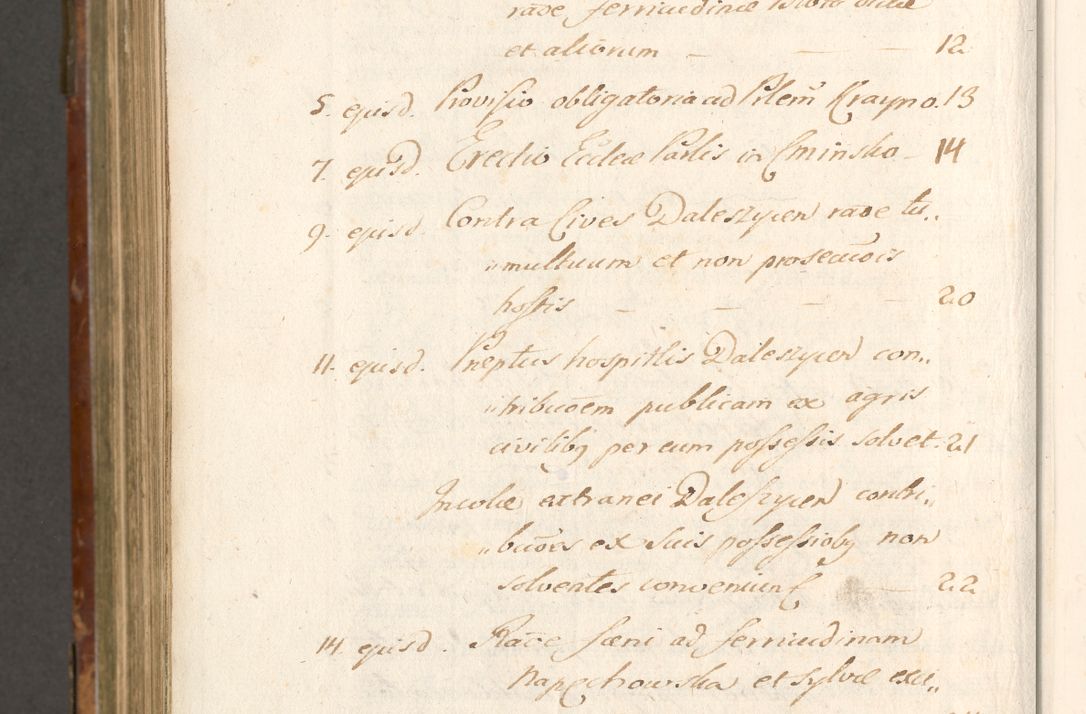 raõe ferricudinæ
et aliorum — — — 12
5. ejusd. Provisio obligatoria ad Pilem̃ Krayno. 13
7. ejusd. Erectio Ecclæ Parlis in Cminsko — 14
9. ejusd. Contra Cives Daleszycen raõe tu„
„multuum et non prosecuõis
hostis — — — 20
11. ejusd. Præptus hospitlis Daleszycen con„
„tribuõem publicam ex agris
civilibq per eum possessis solvet. 21
Incolæ extranei Daleszycen contri„
„buões ex suis possessiobq non
solventes conveniunt — 22
14. ejusd. Raõe fæni ad ferricudinam
Napęchowska et sylvæ exci„